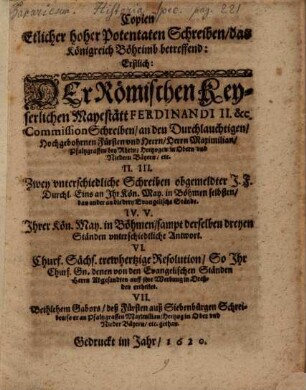 Copien
Etlicher hoher Potentaten Schreiben/das
Königreich Böheimb betreffend:
Erstlich:
Der Römischen Key-
serlichen Mayestätt FERDINANDI II. &c.
Commission Schreiben/an den Durchlauchtigen/
Hochgebohrnen Fürsten und Herrn/Herrn Maximilian/
Pfaltzgraffen bey Rhein/Hertzogen in Obern und
Niedern Bäyern/etc.
II. III.
Zween unterschiedliche Schreiben obgemeldter J. F.
Durchl. Eins an Ihr Kön. May. in Böhmen selbsten/
das ander an die drey Evangelische Stände.
IV. V.
Ihrer Kön. May. in Böhmen/sampt derselben dreyen
Ständen unterschiedliche Antwort.
VI.
Churf. Sächs. trewhertzige Resolution/So Ihr
Churf. Gn. denen von den Evangelischen Ständen
Herrn Abgesandten auff ihre Werbung in Dreß-
den ertheilet.
VII.
Bethlehem Gabors/deß Fürsten auß Siebenbürgen Schrei-
ben/so er an Pfaltzgraffen Maximilian/Hertzog in Ober und
Nieder Bäyern/etc. gethan.
Gedruckt im Jahr/1620.